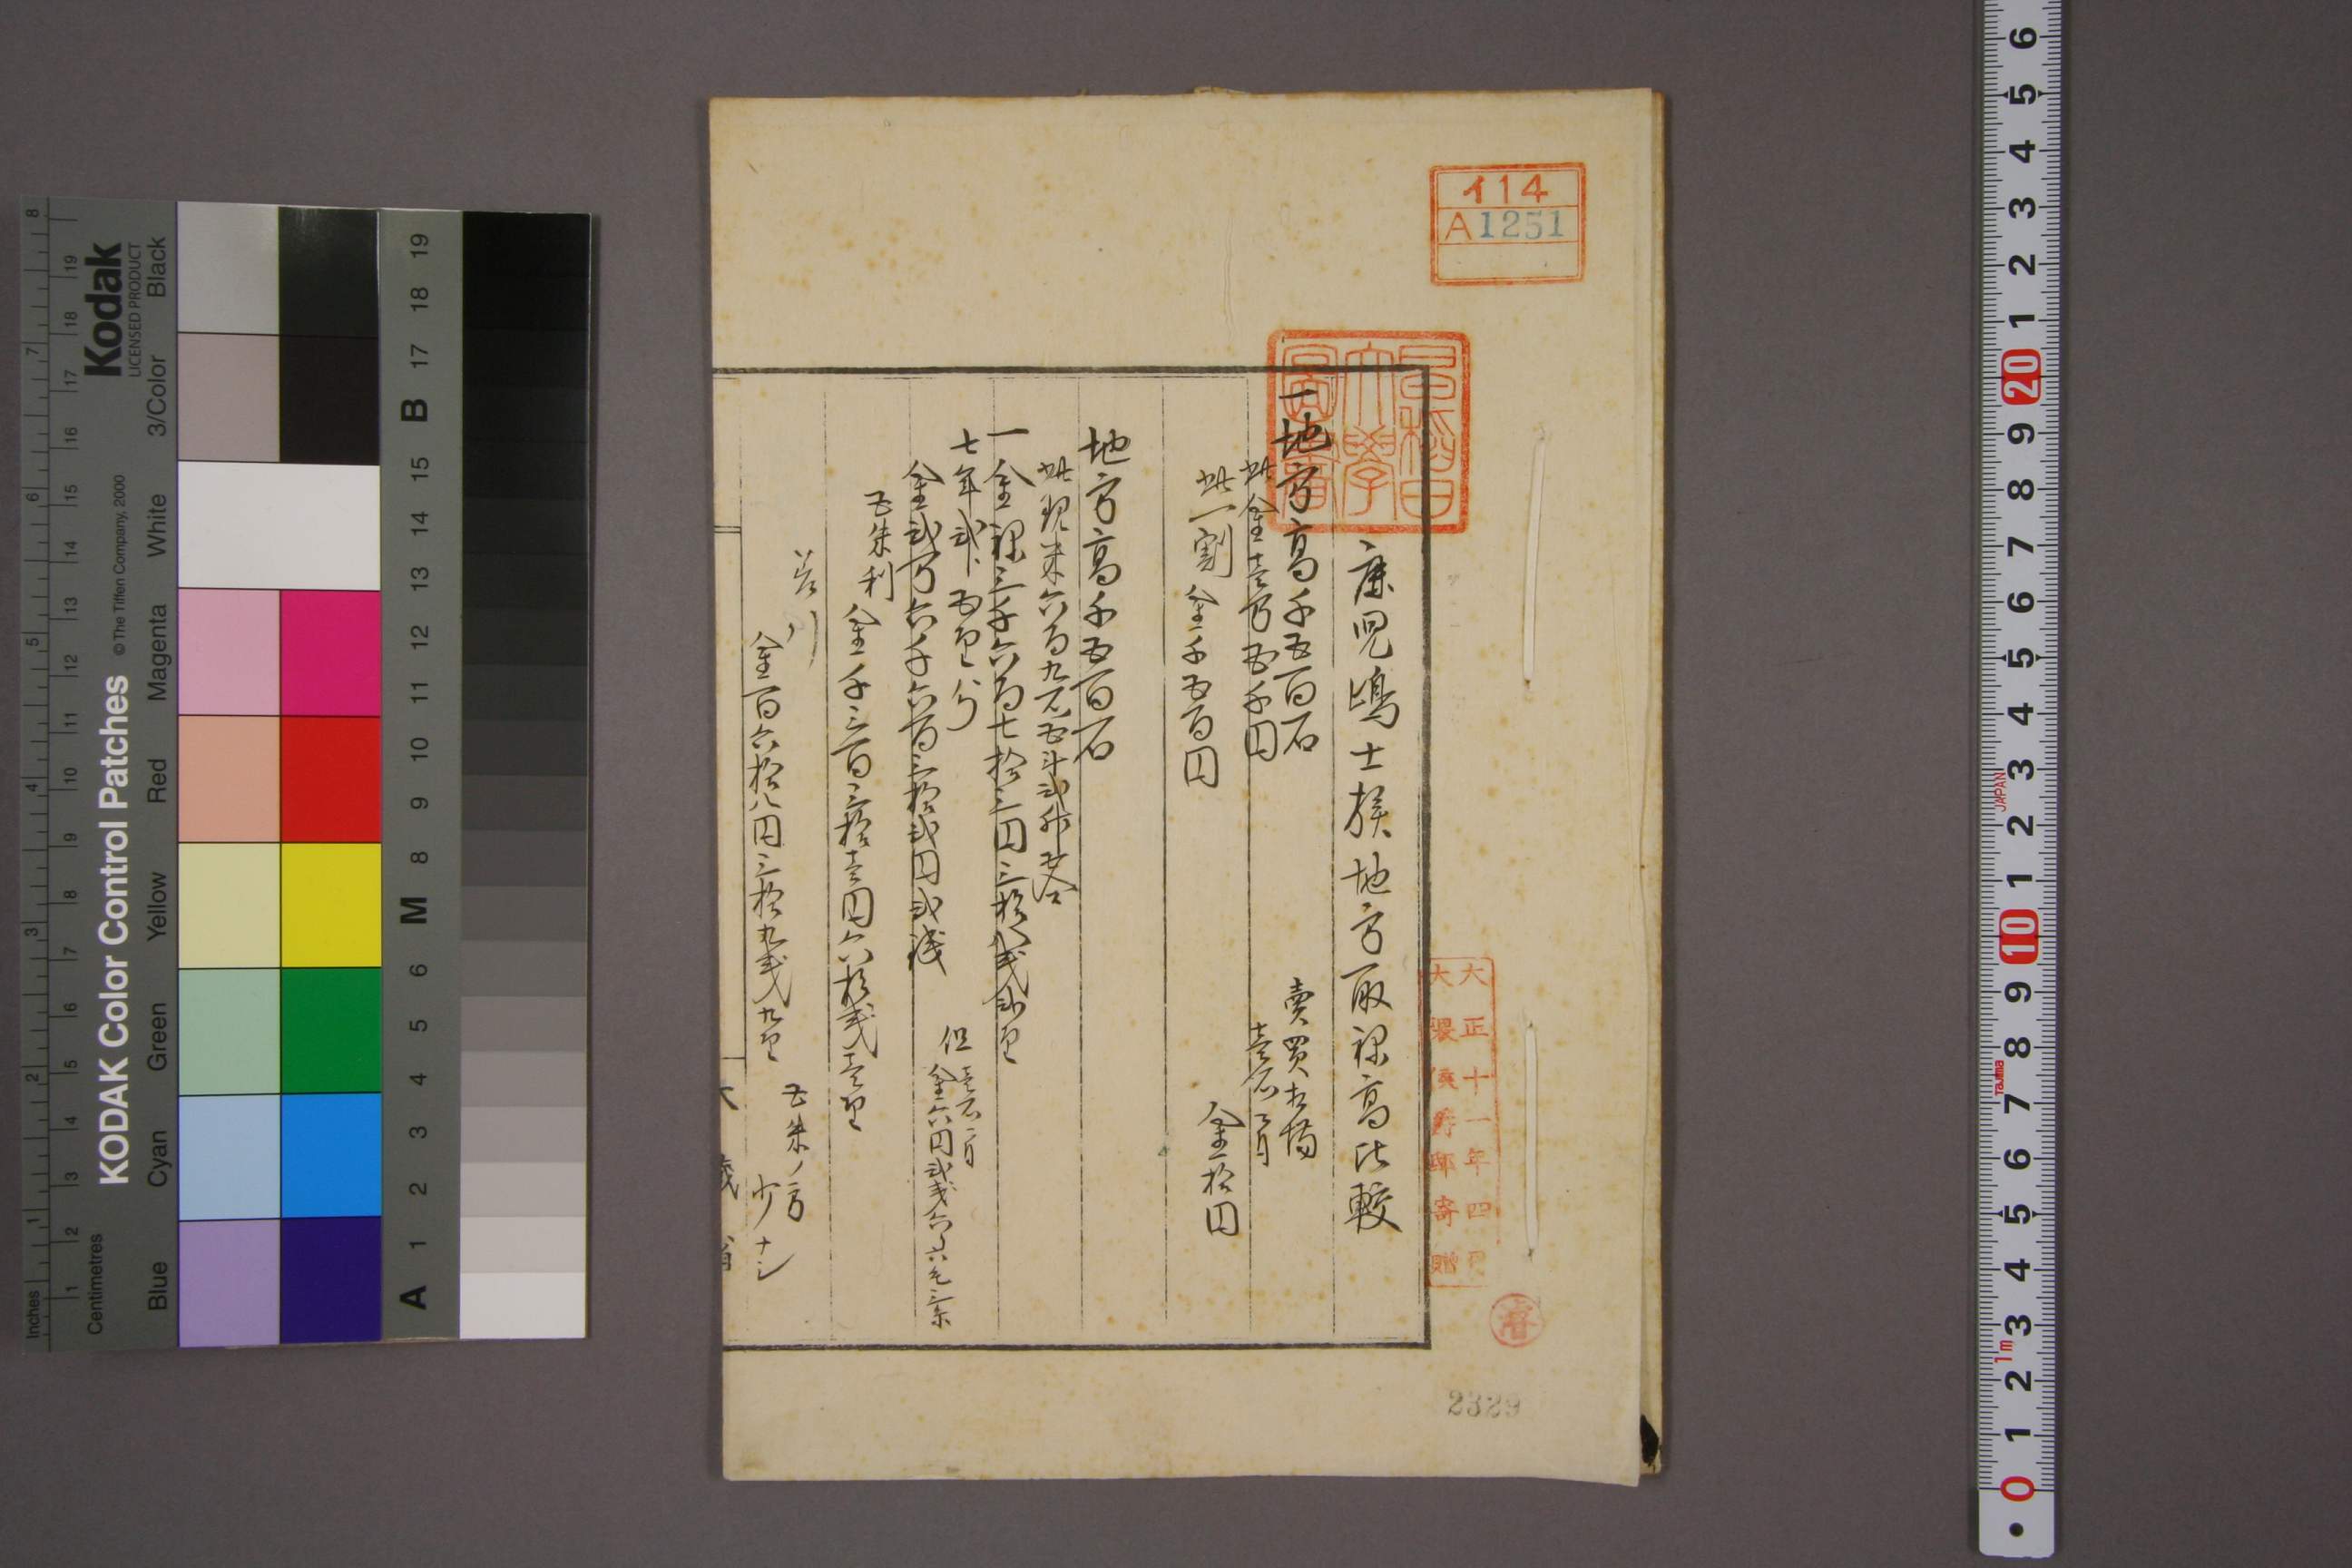 イ14
A1251
早稲田大學圖書
鹿児嶋士族地方取禄高比較
一地方高千五百石
賣買相場
此金壱万五千円
壱石ニ付
金拾円
此一割 金千五百円
地方高千五百石
此現米六百九石五斗弐升
一金禄三千六百七拾三円三拾八銭弐厘
七年弐分五厘分
金弐万六千六百三拾弐円弐銭
但
壱石ニ付
金六円弐銭六厘六毛三糸
五朱利
金千三百三拾壱円六拾銭壱厘
差引
金百六拾八円三拾九銭九厘
五朱ノ方
少ナシ
大蔵省
大正十一年四月
大隈侯爵邸寄贈
2329
KODAK Color Control Patches
Kodak
LICENSED PRODUCT
© The Tiffen Company, 2000
Inches
Centimetres
Blue
Cyan
Green
Yellow
Red
Magenta
White
3/Color
Black
A 1 2 3 4 5 6 M 8 9 10 11 12 13 14 15 B 17 18 19
JAPAN
Tajima
1m